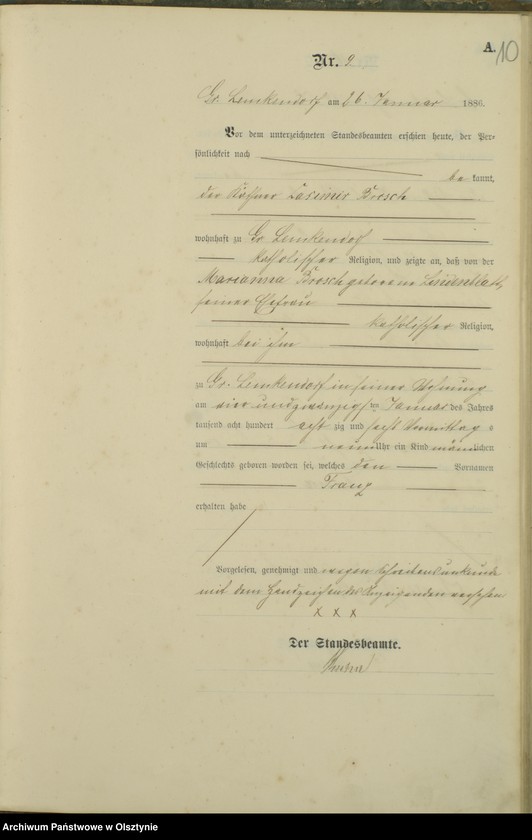 A.
10
Nr. 9
Gr. Lemkendorf am 26. Januar 1886.
Vor dem unterzeichneten Standesbeamten erschien heute, der Per-
sönlichkeit nach
be kannt,
der Käthner Casimir Brosch
wohnhaft zu Gr. Lemkendorf
katholischer Religion, und zeigte an, daß von der
Marianna Brosch geborenen Lindenblatt,
seiner Ehefrau
katholischer Religion,
wohnhaft bei ihm
zu Gr. Lemkendorf in seiner Wohnung
am vier und zwanzigsten Januar des Jahres
tausend acht hundert achtzig und sechs Vormittags
um neun Uhr ein Kind männlichen
Geschlechts geboren worden sei, welches den Vornamen
Franz
erhalten habe
Vorgelesen, genehmigt und wegen Schreibensunkunde
mit dem Handzeichen des Anzeigenden versehen
x x x
Der Standesbeamte.
Archiwum Państwowe w Olsztynie